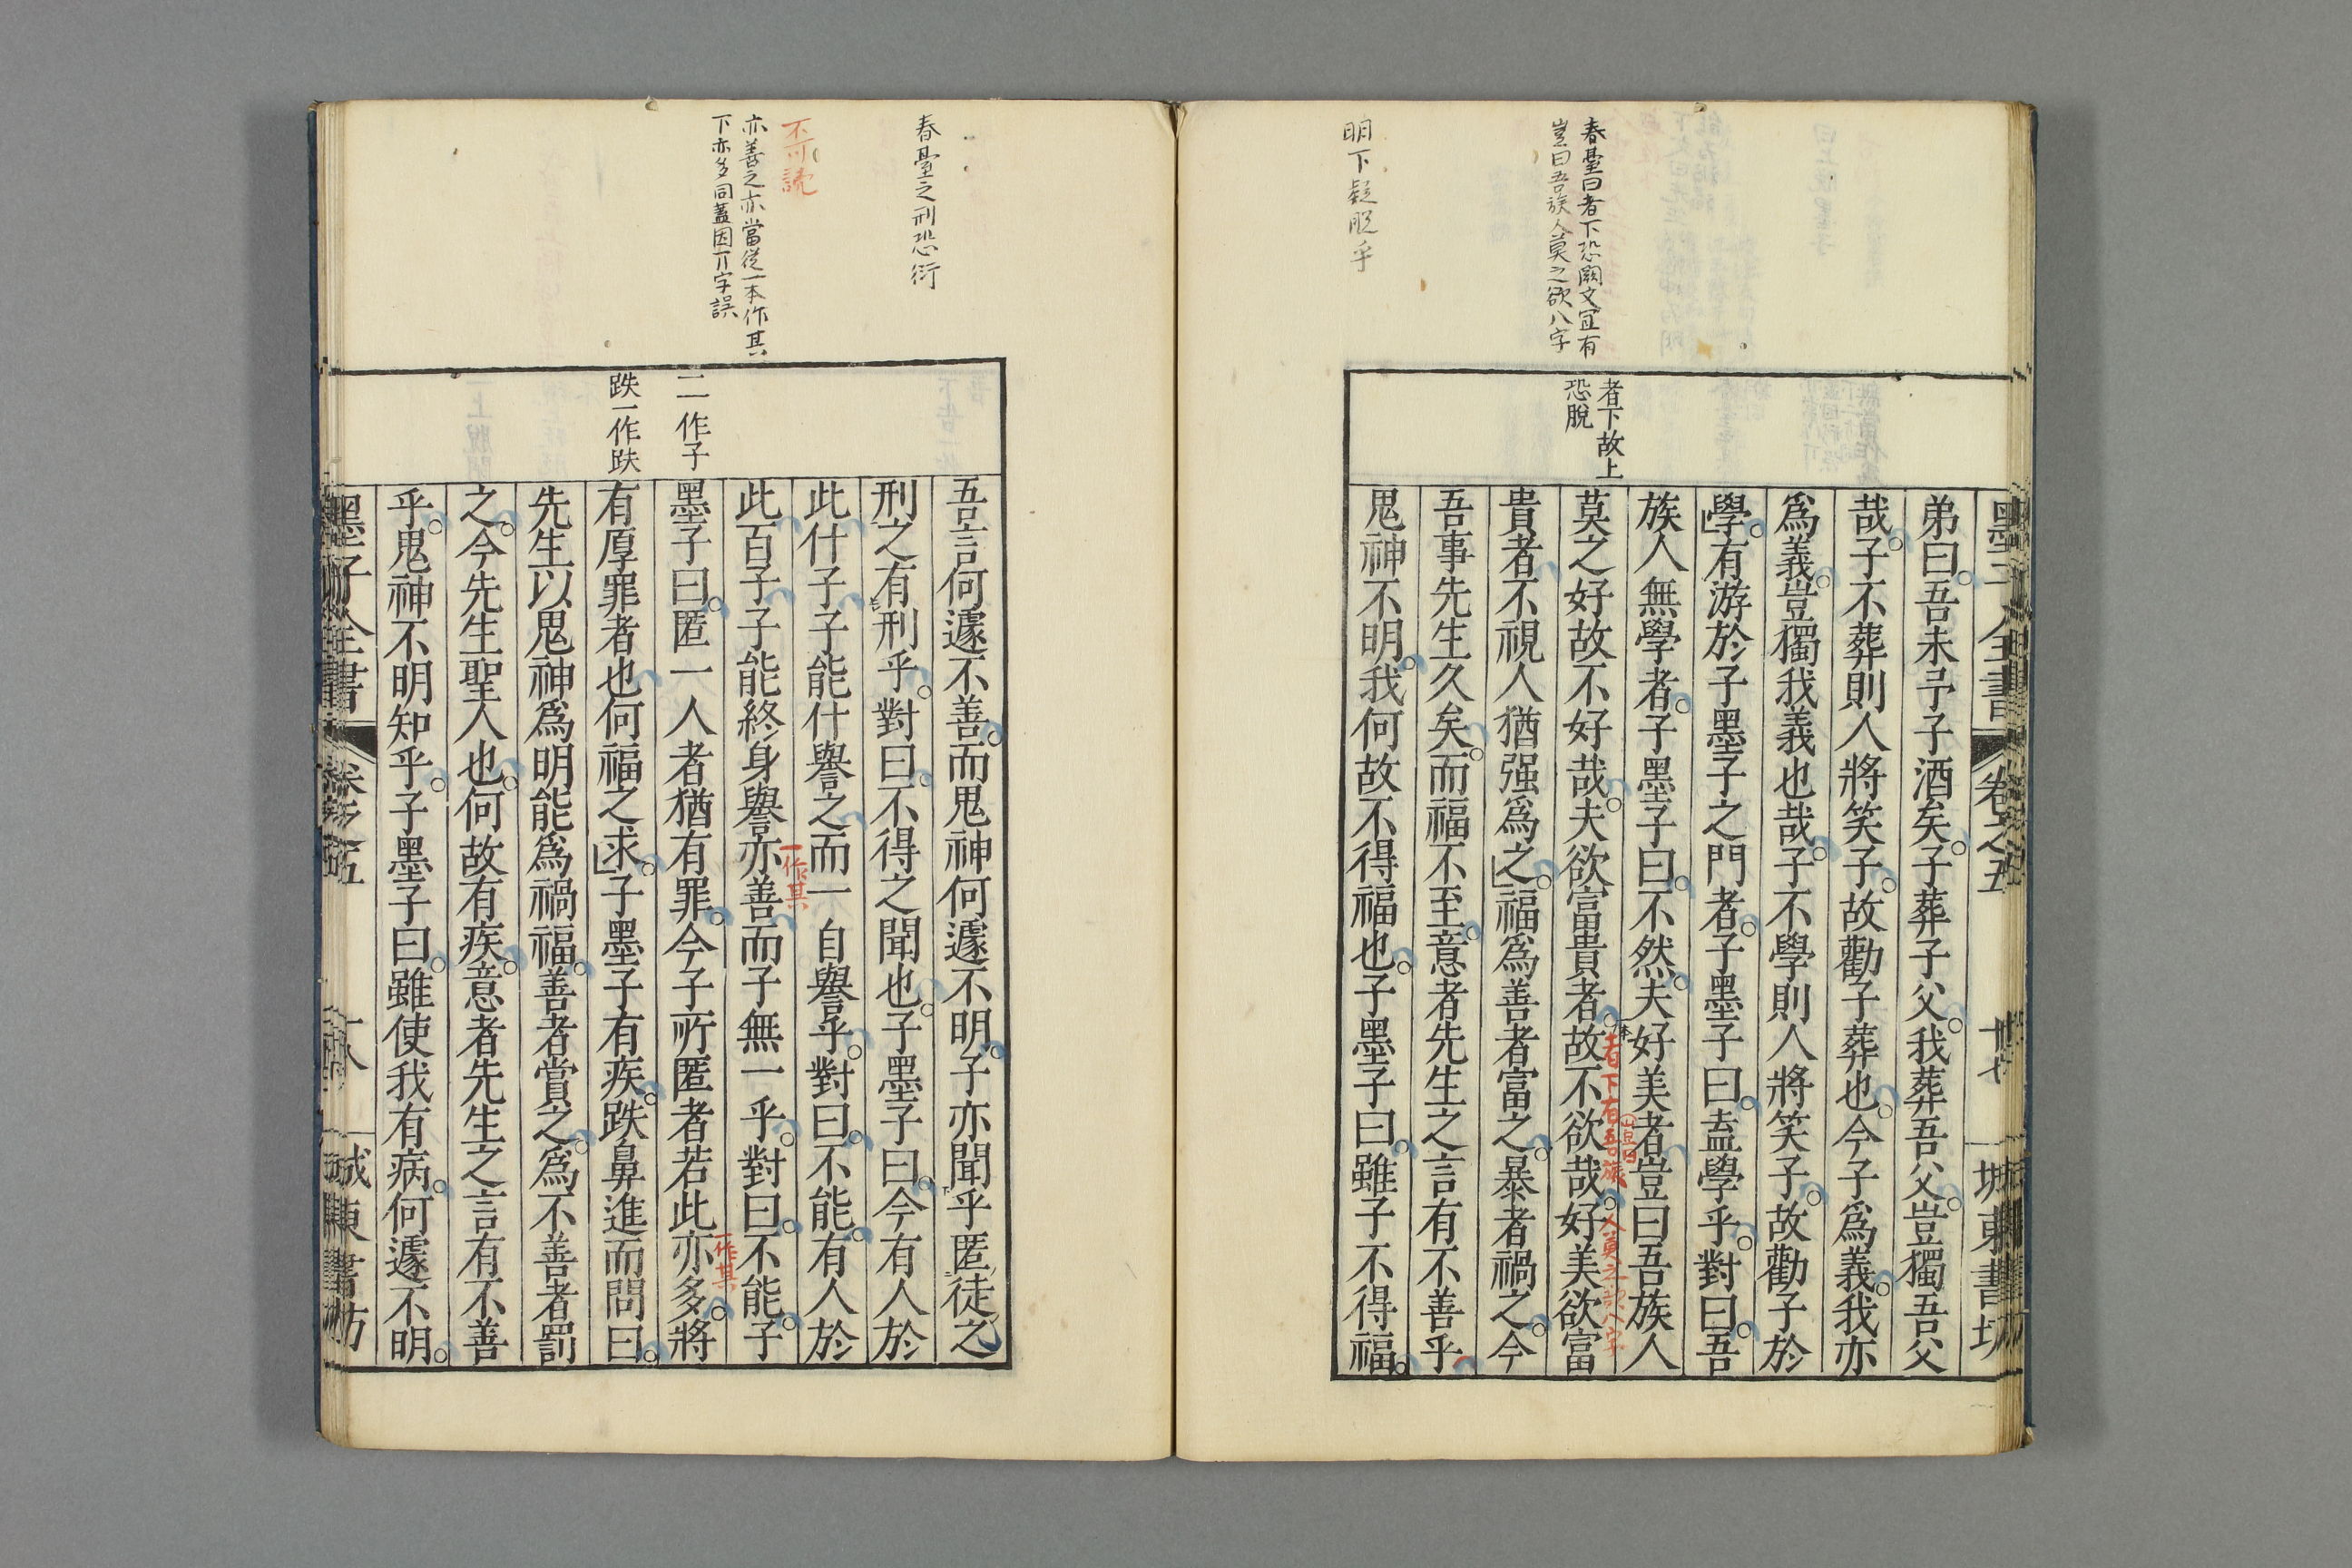 春臺曰者下恐闕文宜有
豈曰吾族人莫之欲八字
明下疑脫乎
者下故上
恐脫
弟曰吾未予子酒矣子葬子父我葬吾父豈獨吾父
哉子不葬則人將笑子故勸子葬也今子爲義我亦
爲義豈獨我義也哉子不學則人將笑子故勸子於
學有游於子墨子之門者子墨子曰盍學乎對曰吾
族人無學者子墨子曰不然夫好美者豈曰吾族人
莫之好故不好哉夫欲富貴者故不欲哉好美欲富
者下有豈曰吾族人莫之欲八字
貴者不視人猶强爲之福爲善者富之暴者禍之今
吾事先生久矣而福不至意者先生之言有不善乎
鬼神不明我何故不得福也子墨子曰雖子不得福
春臺之刑恐衍
不可読
亦善之亦當從一本作其
下亦多同蓋因丌字誤
二一作子
跌一作趺
吾言何遽不善而鬼神何遽不明子亦聞乎匿徒之
刑之有刑乎對曰不得之聞也子墨子曰今有人於
此什子子能什譽之而一自譽乎對曰不能有人於
此百子子能終身譽亦善而子無一乎對曰不能子
一作其
墨子曰匿一人者猶有罪今子所匿者若此亦多將
一作其
有厚罪者也何福之求子墨子有疾跌鼻進而問曰
先生以鬼神爲明能爲禍福善者賞之爲不善者罰
之今先生聖人也何故有疾意者先生之言有不善
乎鬼神不明知乎子墨子曰雖使我有病何遽不明
墨子全書 卷之五 城東書坊